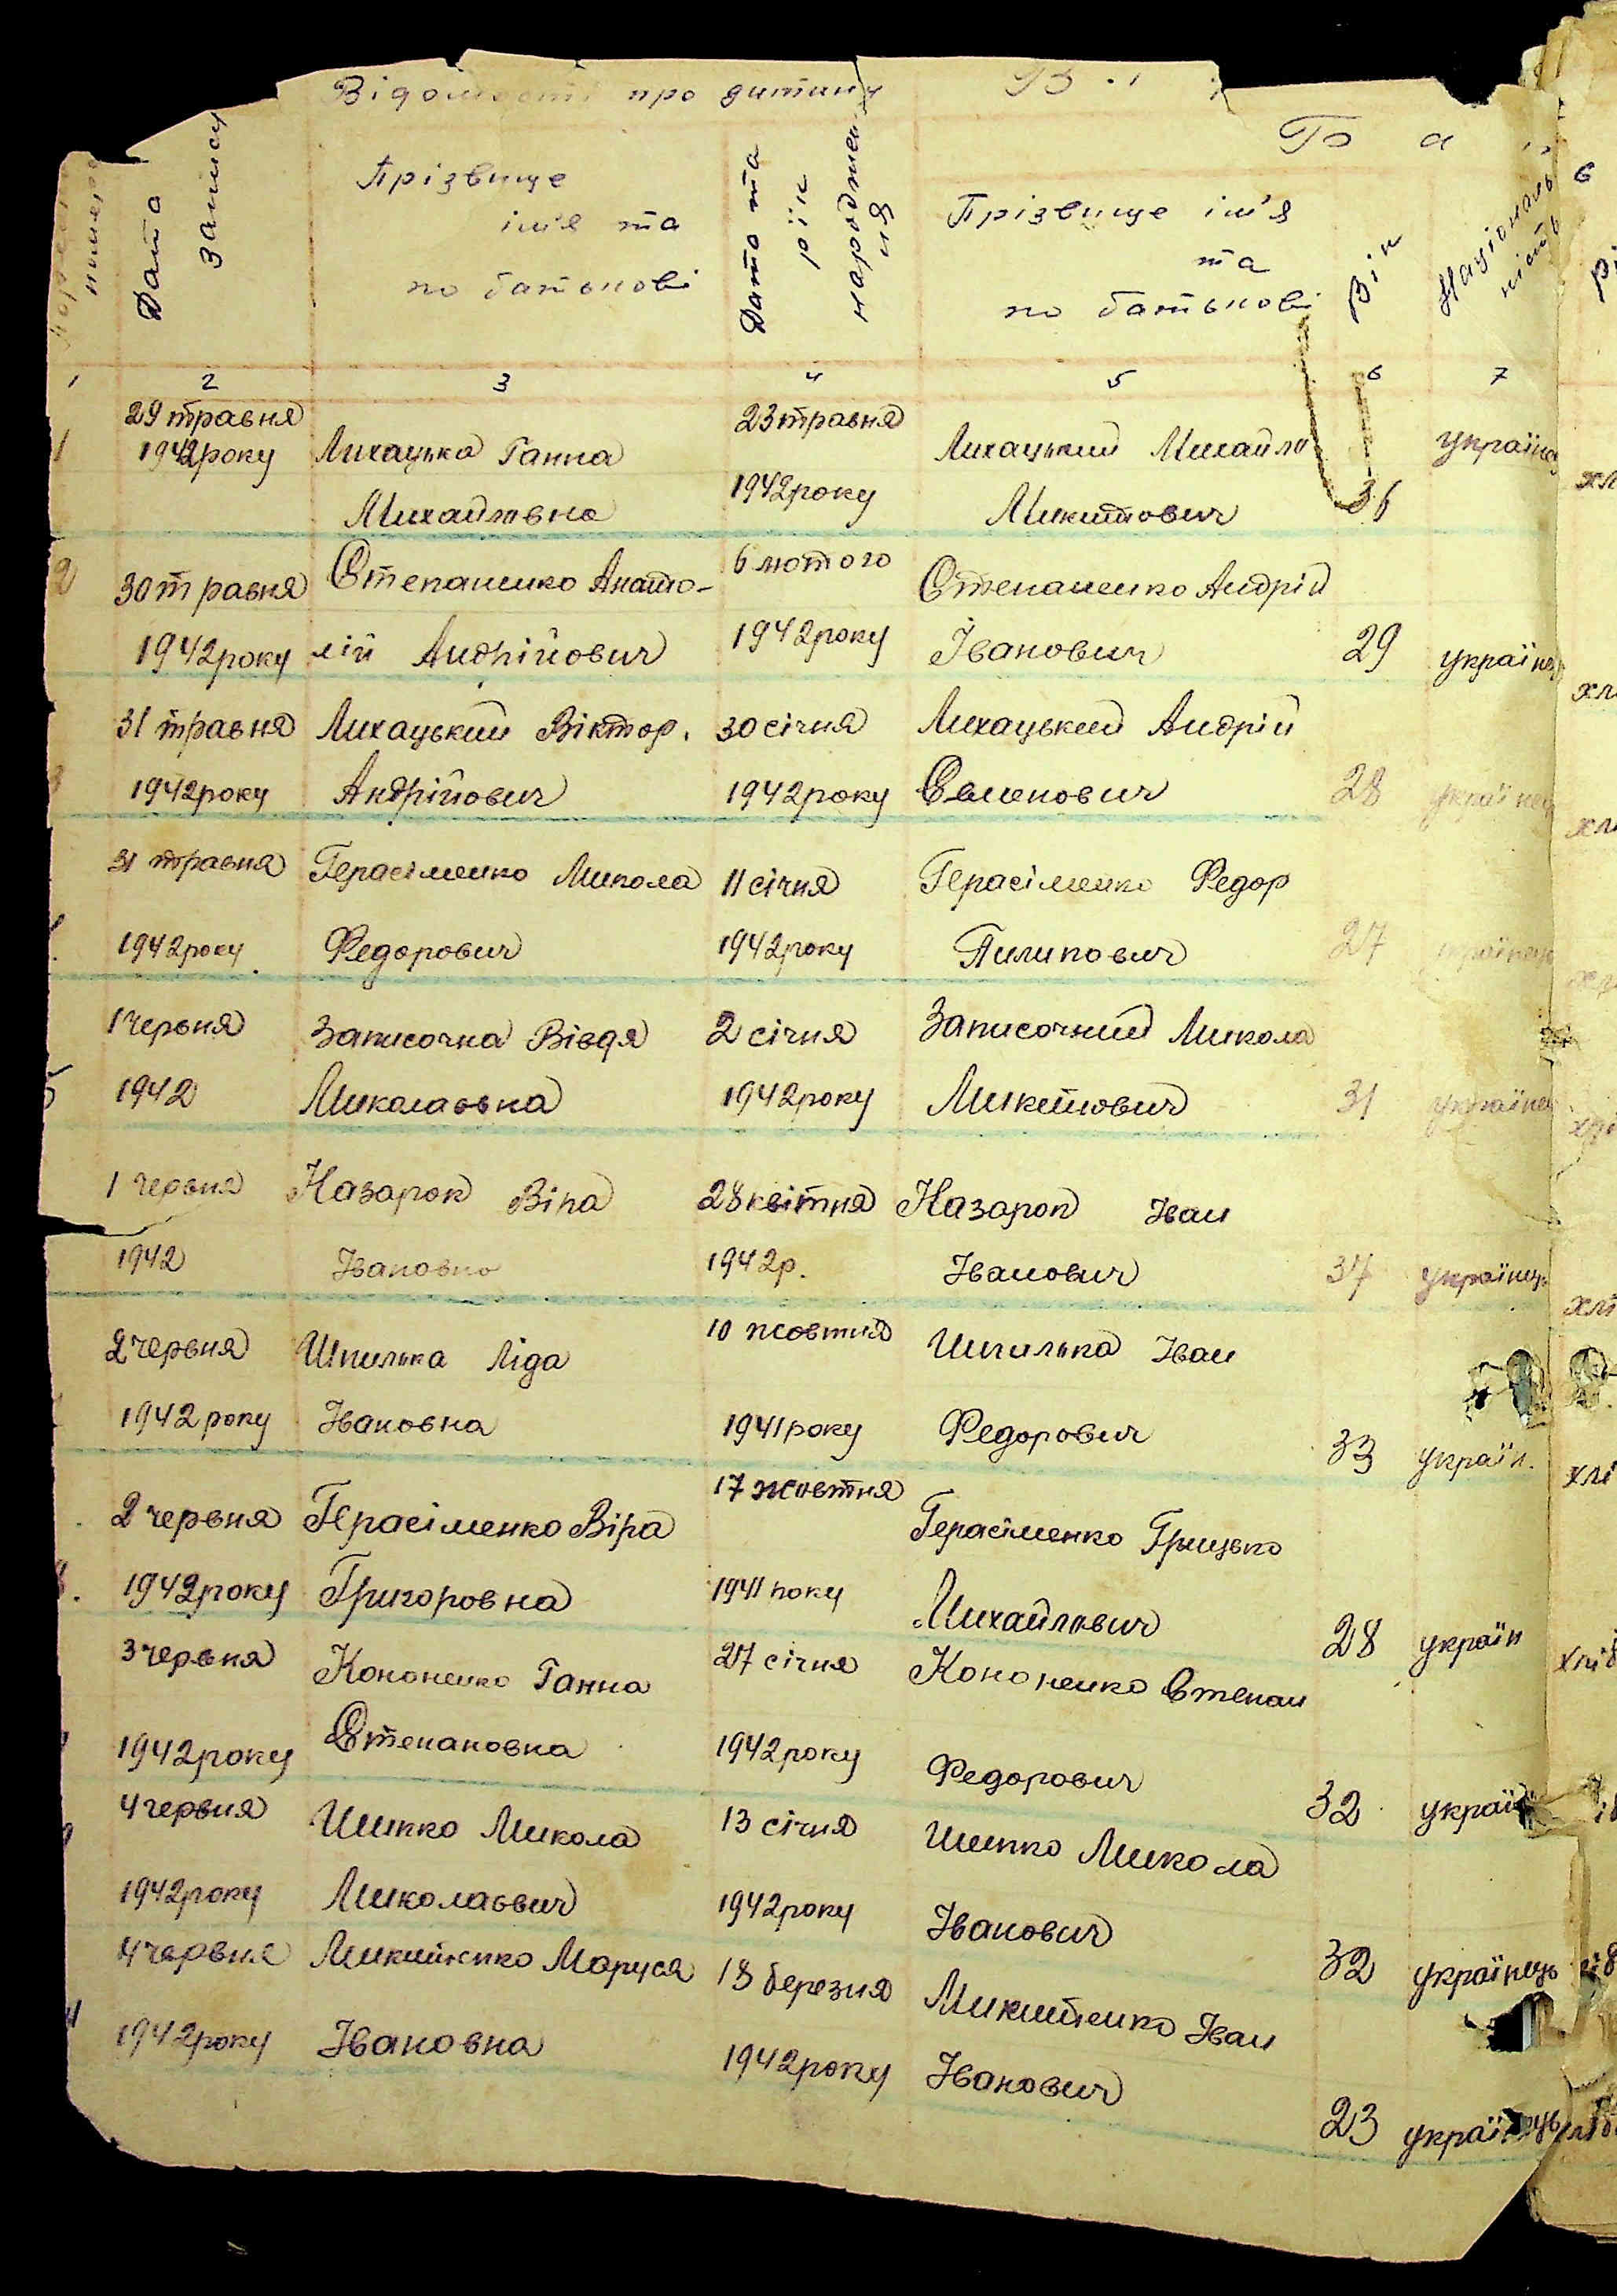 Відомості про дитину
Дата запису
Прізвище
ім'я та
по батькові
Дата та рік народження
Прізвище ім'я
та
по батькові
Вік
Національність
1 2 3 4 5 6 7
1 29 травня 23 травня
1942 року Лихацька Ганна Лихацький Михайло українець
Михайловна 1942 року Микитович 36
2 30 травня Степаненко Анато- 6 лютого Степаненко Андрій
1942 року лій Андрійович 1942 року Іванович 29 українець
31 травня Лихацький Віктор. 30 січня Лихацький Андрій
1942 року Андрійович 1942 року Семенович 28 українец
31 травня Герасіменко Микола 11 січня Герасіменко Федор
1942 року Федорович 1942 року Пилипович 27 українець
1 червня Записочна Вівдя 2 січня Записочний Микола
5 1942 Миколаовна 1942 року Микитович 31 українец
1 червня Назарок Віра 28 квітня Назарок Іван
1942 Івановна 1942 р. Іванович 34 українець
2 червня Шпилька Ліда 10 жовтня Шпилька Іван
1942 року Івановна 1941 року Федорович 33 україн.
2 червня Герасіменко Віра 17 жовтня Герасіменко Грицько
1942 року Григоровна 1941 року Михайлович 28 україн
3 червня Кононенко Ганна 27 січня Кононенко Степан
1942 року Степановна 1942 року Федорович 32 україн
4 червня Шипко Микола 13 січня Шипко Микола
1942 року Миколаович 1942 року Іванович 32 українець
4 червня Микитенко Маруся 18 березня Микитенко Іван
1942 року Івановна 1942 року Іванович 23 українець